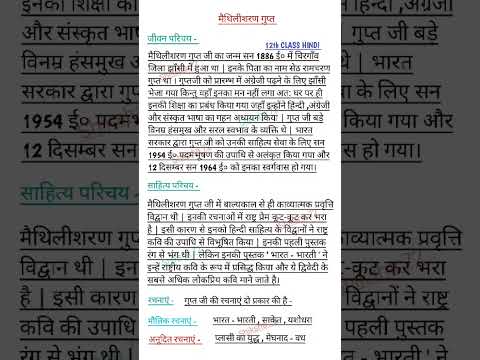 मैथिलीशरण गुप्त
जीवन परिचय -
12th CLASS HINDI
मैथिलीशरण गुप्त जी का जन्म सन 1886 ई० में चिरगाँव
जिला झाँसी में हुआ था | इनके पिता का नाम सेठ रामचरण
गुप्त था | गुप्तजी को प्रारम्भ में अंग्रेजी पढ़ने के लिए झाँसी
भेजा गया किन्तु वहाँ इनका मन नहीं लगा अत: घर पर ही
इनकी शिक्षा का प्रबंध किया गया जहाँ इन्होंने हिन्दी ,अंग्रेजी
और संस्कृत भाषा का गहन अध्ययन किया | गुप्त जी बड़े
विनम्र हंसमुख और सरल स्वभाव के व्यक्ति थे | भारत
सरकार द्वारा गुप्त जी को उनकी साहित्य सेवा के लिए सन
1954 ई० पदमभूषण की उपाधि से अलंकृत किया गया और
12 दिसम्बर सन 1964 ई० को इनका स्वर्गवास हो गया।
साहित्य परिचय -
मैथिलीशरण गुप्त जी में बाल्यकाल से ही काव्यात्मक प्रवृत्ति
विद्वान थी | इनकी रचनाओं में राष्ट्र प्रेम कूट-कूट कर भरा
है | इसी कारण से इनको हिन्दी साहित्य के विद्वानों ने राष्ट्र
कवि की उपाधि से विभूषित किया | इनकी पहली पुस्तक
रंग से भंग थी | लेकिन इनकी पुस्तक ' भारत - भारती ' ने
इन्हें राष्ट्रीय कवि के रूप में प्रसिद्ध किया और ये द्विवेदी के
सबसे अधिक लोकप्रिय कवि माने जाते है।
रचनाएं - गुप्त जी की रचनाएं दो प्रकार की है -
मौलिक रचनाएं - भारत - भारती , साकेत , यशोधरा
अनूदित रचनाएं - प्लासी का युद्ध , मेघनाद - वध